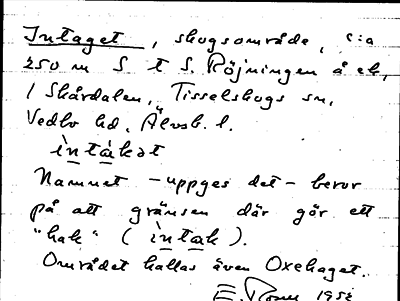 Intaget, skogsområde, c:a
250 m S t S. Röjningen å ek,
1 Skårdalen, Tisselskogs sn,
Vedbo hd. Älvsb. l.
ìntákət
Namnet - uppges det - beror
på att gränsen där gör ett
"hak" (ìntak).
Området kallas även Oxehaget.
E. 1952